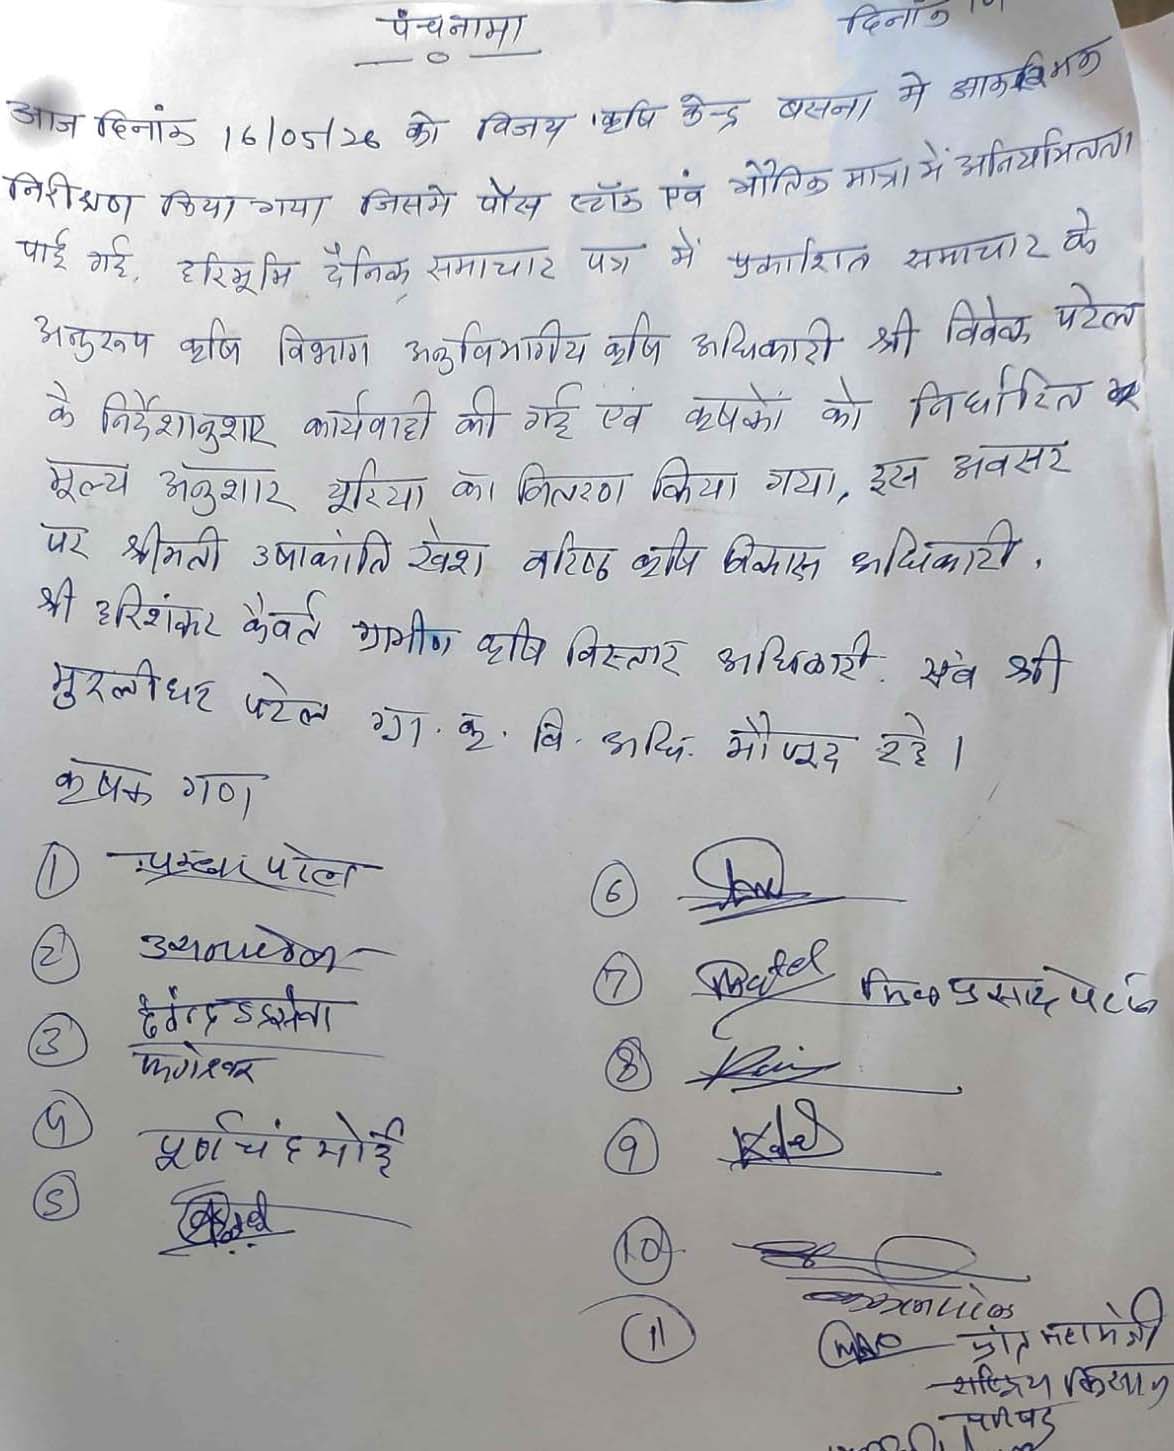 पंचनामा
दिनांक
आज दिनांक 16/05/26 को विजय कृषि केन्द्र बसना में आकस्मिक
निरीक्षण किया गया जिसमे पौस स्टॉक एवं भौतिक मात्रा में अनियमितता
पाई गई, हरिभूमि दैनिक समाचार पत्र में प्रकाशित समाचार के
अनुरूप कृषि विभाग अनुविभागीय कृषि अधिकारी श्री विवेक पटेल
के निर्देशानुशार कार्यवाही की गई एवं कृषकों को निर्धारित
मूल्य अनुशार यूरिया का वितरण किया गया, इस अवसर
पर श्रीमती उषाकांति खेश वरिष्ठ कृषि विकास अधिकारी,
श्री हरिशंकर कैवर्त ग्रामीण कृषि विस्तार अधिकारी. एवं श्री
मुरलीधर पटेल ग्रा. कृ. वि. अधि. मौजूद रहे।
कृषक गण
1 पटेल
2
3
4 पूर्णचंद भोई
5
6
7 Patel प्रसाद पटेल
8
9
10
11 प्रांत महामंत्री
राष्ट्रिय किसान
परिषद